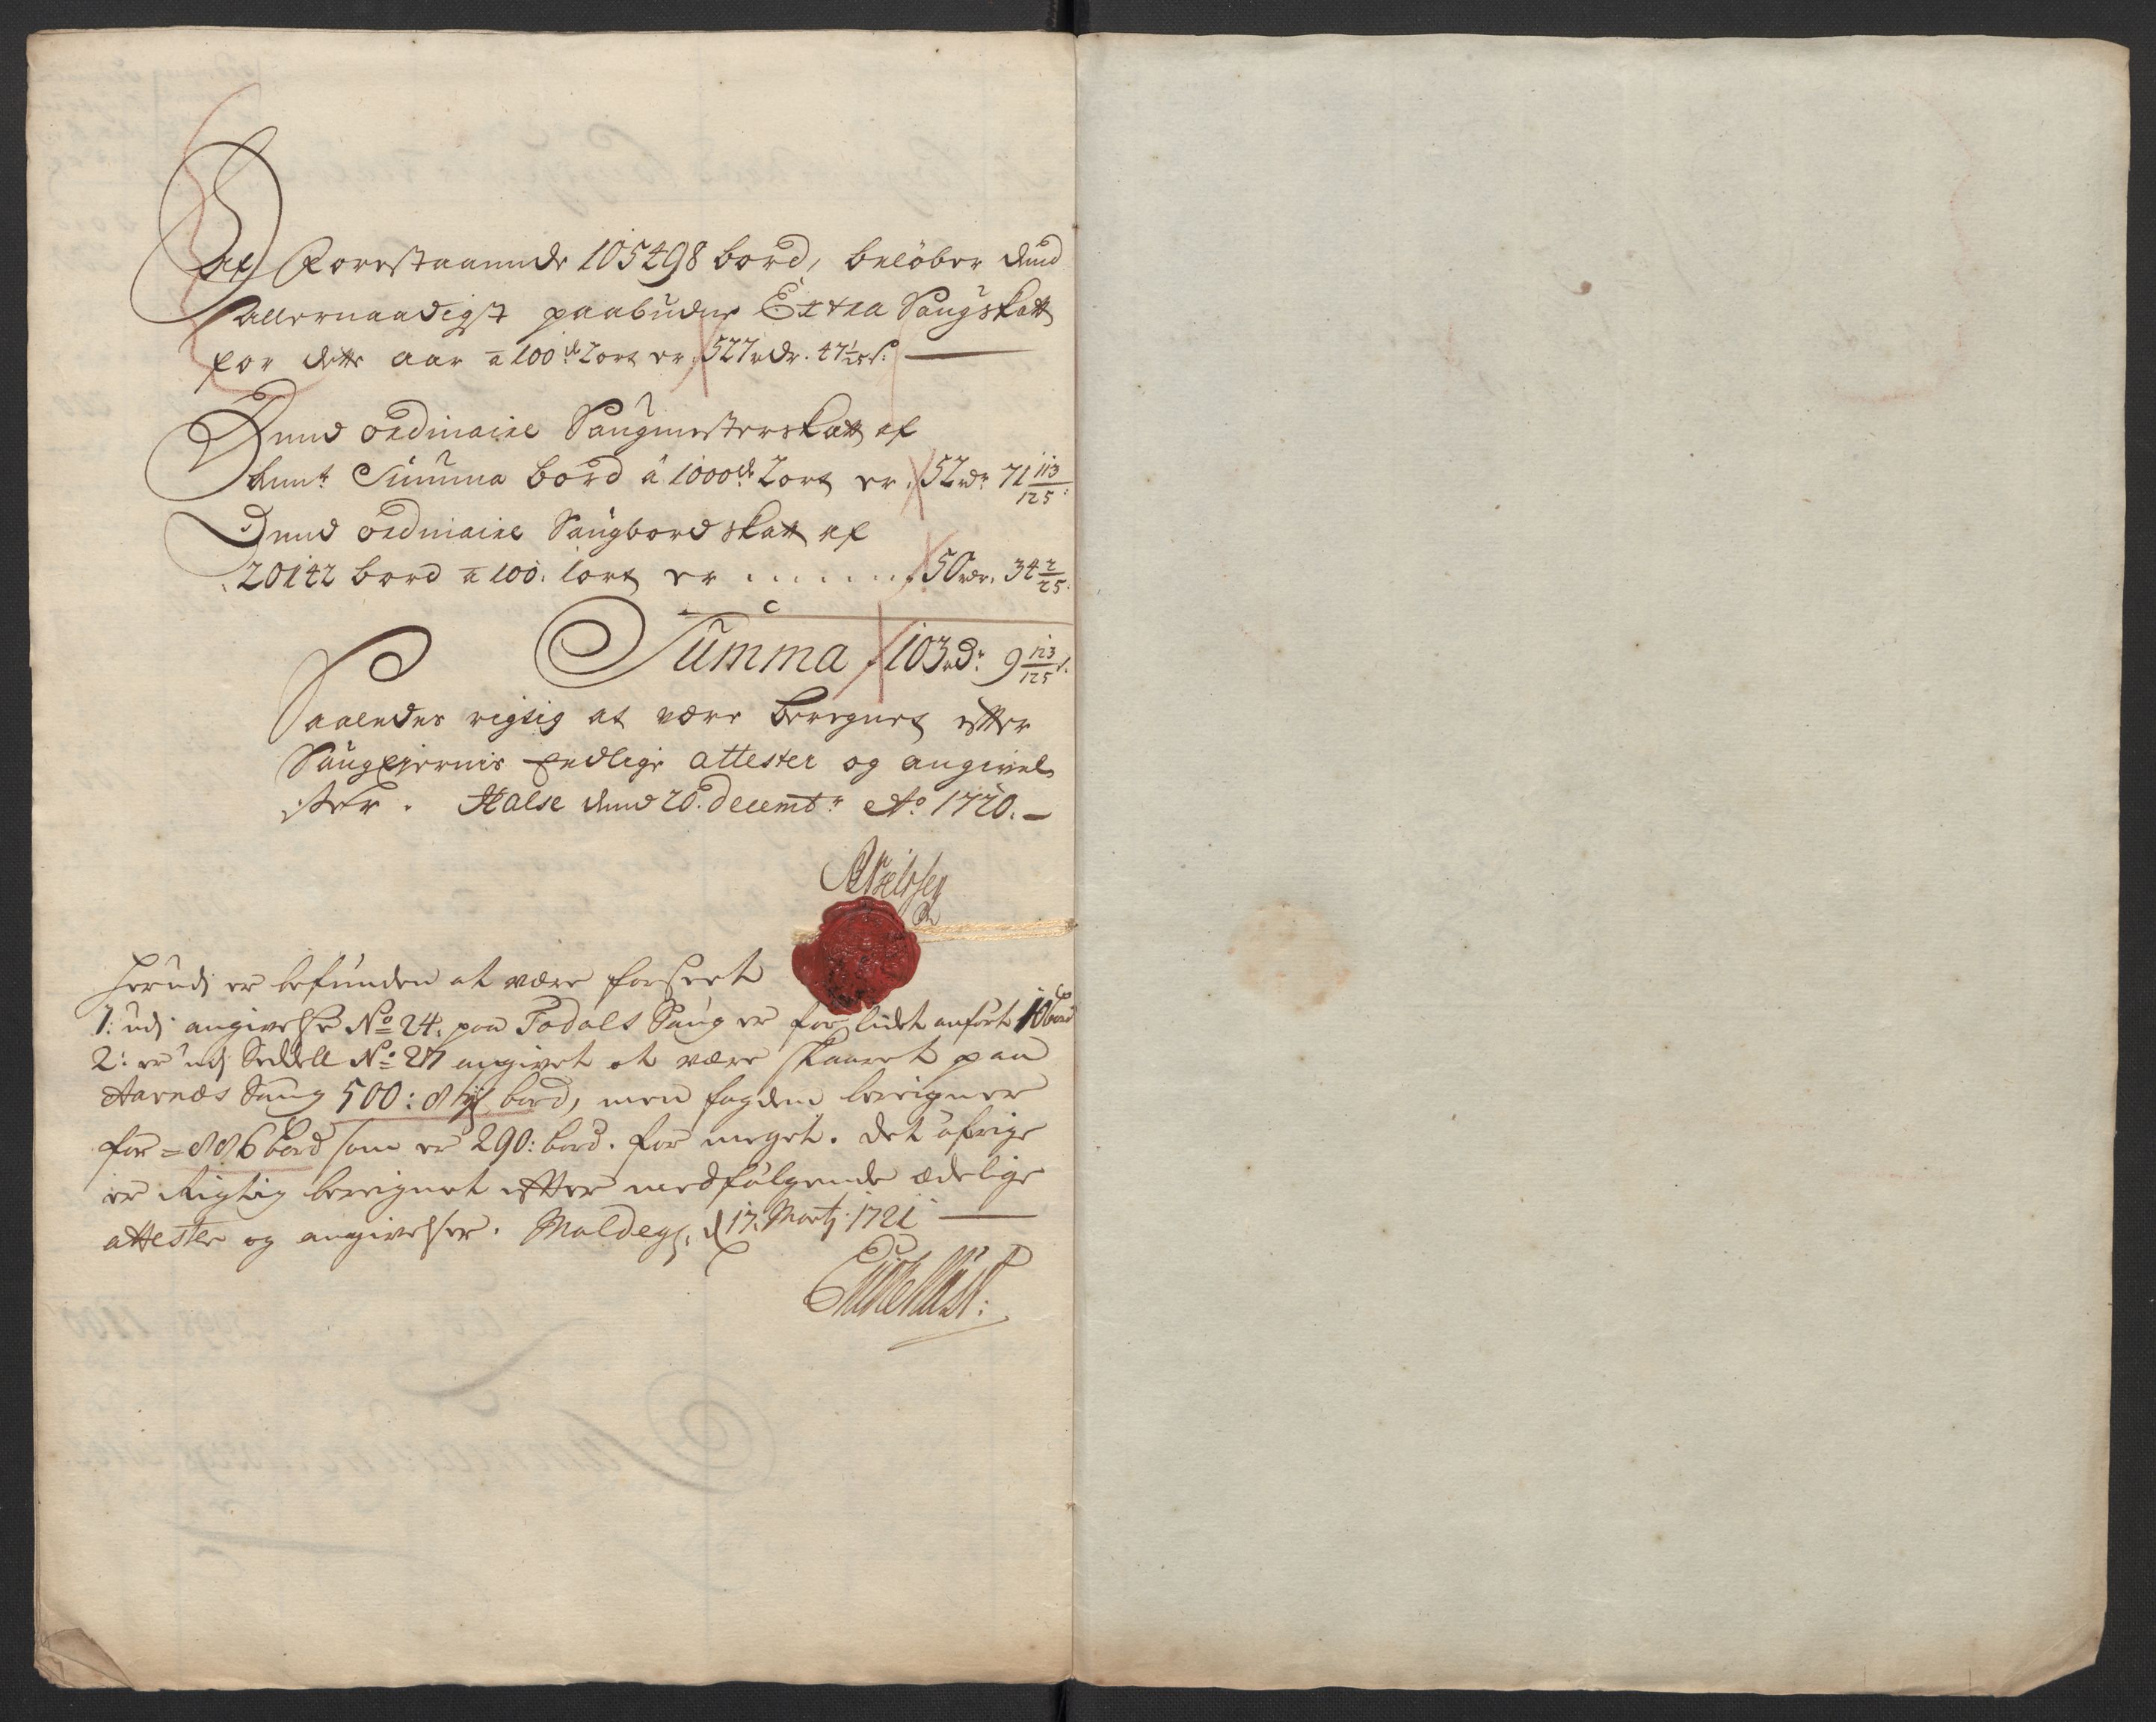 Af Forestaaende 105498 bord, beløber dend
Allernaadigst paabudne Extra Saugskatt
for dette aar a 100de 2 ort er 527 rdr. 47 1/25 s.
Dend ordinaire Saugmesterskatt af
denne Summa bord á 1000de 2 ort er 52 rdr 71 113/125:
Dend ordinaire Saugbord skatt af
20142 bord a 100: 1 ort er . . . . . . . 50 rdr. 34 2/25.
Summa 103 rdr: 9 123/125 s.
Saaledes rigtig at være beregnet efter
Saugeyernis Eedlige attester og angivel
ser. Halse dend 20. decembr Ao 1720. –
herudj er befunden at være forseet
1: udj angivelse No 24, paa Todals Saug er for lidet anfört 10 bord
2: er udj Seddell No 27 angivet at være skaaret paa
Aarnæs Saug 500: 8 bord, men fogden bereigner
for = 886 bord som er 290: bord. for meget. det öfrige
er Rigtig bereignet efter medfølgende ædelige
attester og angivelser. Moldeg: d 17. Martj 1721